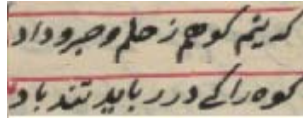 که نیم کوهم ز حلم و صبر و داد
کوه را کی در رباید تند باد